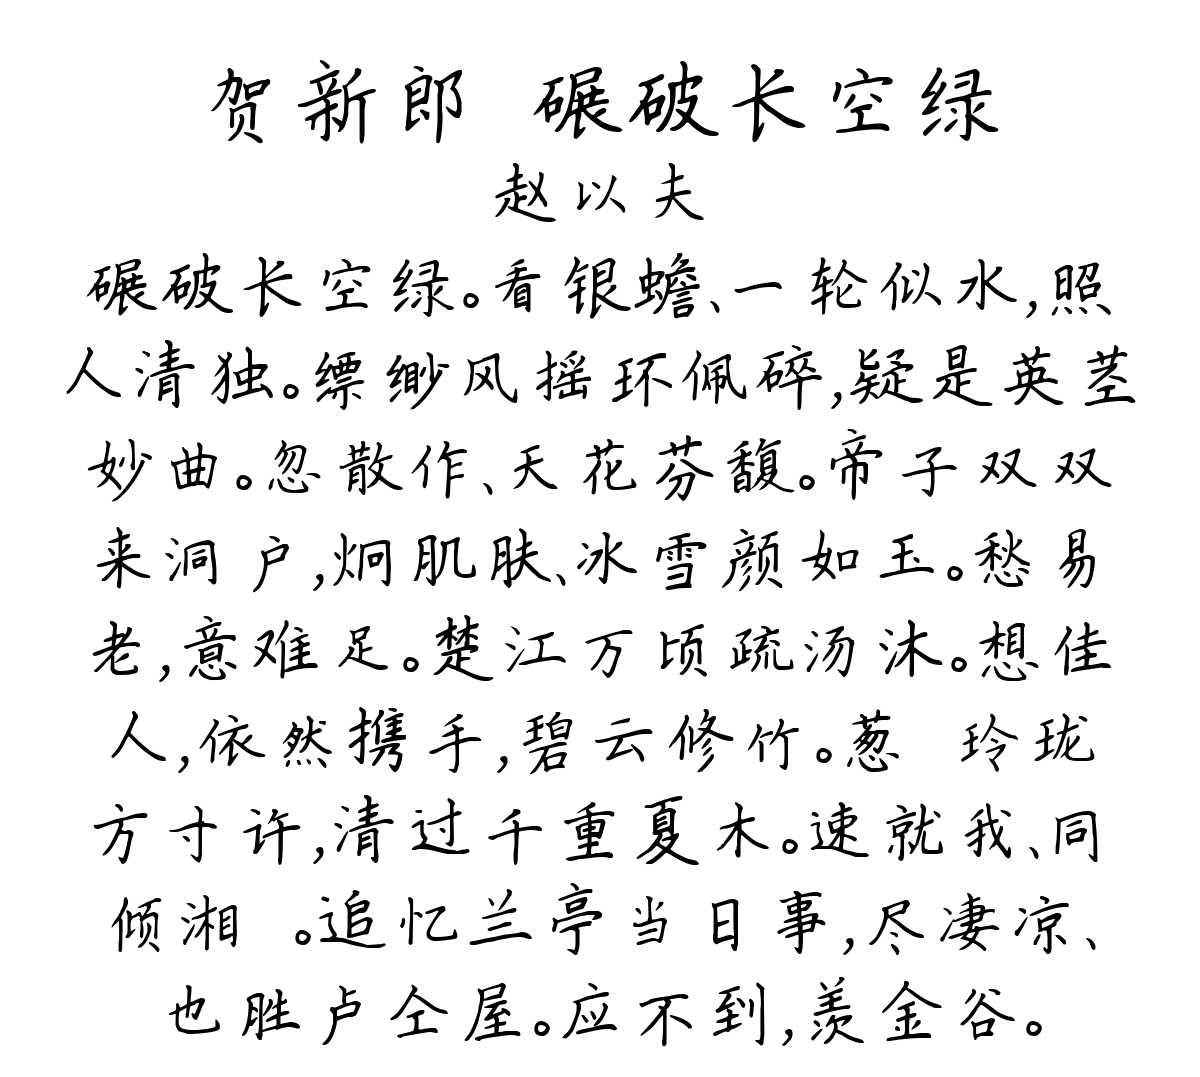 贺新郎 碾破长空绿
赵以夫
碾破长空绿。看银蟾、一轮似水,照
人清独。缥缈风摇环佩碎,疑是英茎
妙曲。忽散作、天花芬馥。帝子双双
来洞户,炯肌肤、冰雪颜如玉。愁易
老,意难足。楚江万顷疏汤沐。想佳
人,依然携手,碧云修竹。葱 玲珑
方寸许,清过千重夏木。速就我、同
倾湘 。追忆兰亭当日事,尽凄凉、
也胜卢仝屋。应不到,羡金谷。